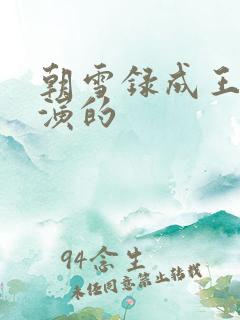 朝雪録成王
演的
94念生
未经同意禁止转载